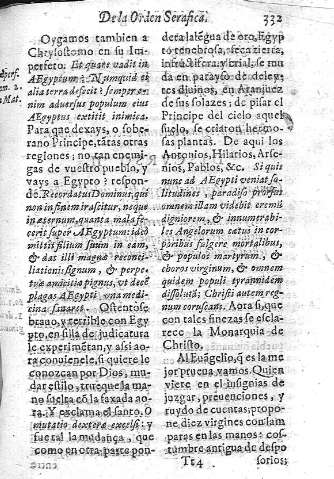 De la Orden Serafica. 332
Oygamos tambien a
Chrysostomo en su Im-
perfeto. Et quare vadit in
AEgyptum? Numquid et
alia terra deficit? semper e-
nim adversus populum eius
AEgyptus extitit inimica.
Para que dexays, o sobe-
rano Principe, tãtas otras
regiones; no tan enemi-
gas de vuestro pueblo, y
vays a Egypto? respon-
de. Recordatus Dominus, qui
non in finem irascitur, neque
in æternum, quanta mala fe-
cerit super AEgyptum: ideo
mittit filium suum in eam,
& dat illi magnæ reconci-
liationis signum, & perpe-
tuæ amicitiæ pignus, vt decẽ
plagas AEgypti vna medi-
cina sanaret. Ostentose
brauo, y terrible con Egy
pto, en silla de judicatura
le experimẽtan, y assi ao-
ra conuienele, si quiere le
conozcan por Dios, mu-
dar estilo, trueque la ma
no suelta cõ la faxada ao-
ra. Y exclama el santo. O
mutatio dexteræ excelsi: y
fue tal la mudança, que
como en otra parte dixo
de la legua de oro, Egyp
to tenebrosa, seca, yerta,
infructifera, y erial, se mu
da en parayso de deley-
tes diuinos, en Aranjuez
de sus solazes; de pisar el
Principe del cielo aquel
suelo, se criaron hermo-
sas plantas. De aqui los
Antonios, Hilarios, Arse-
nios, Pablos, &c. Si quis
nunc ad AEgypti veniat so-
litudines, paradiso prorsus
omnem illam videbit eremũ
digniorem, & innumerabi-
les Angelorum cœtus in cor-
poribus fulgere mortalibus,
& populos martyrum, &
choros virginum, & omnem
quidem populi tyrannidem
dissolutã; Christi autem reg-
num coruscans. Aora si, que
con tales finezas se escla-
rece la Monarquia de
Christo.
Al Euãgelio, q̃ es la me
jor prueua vamos. Quien
viere en el insignias de
juzgar, preuenciones, y
ruydo de cuentas; propo-
ne diez virgines con lam
paras en las manos: cos-
tumbre antigua de despo
Tt 4 sorios;